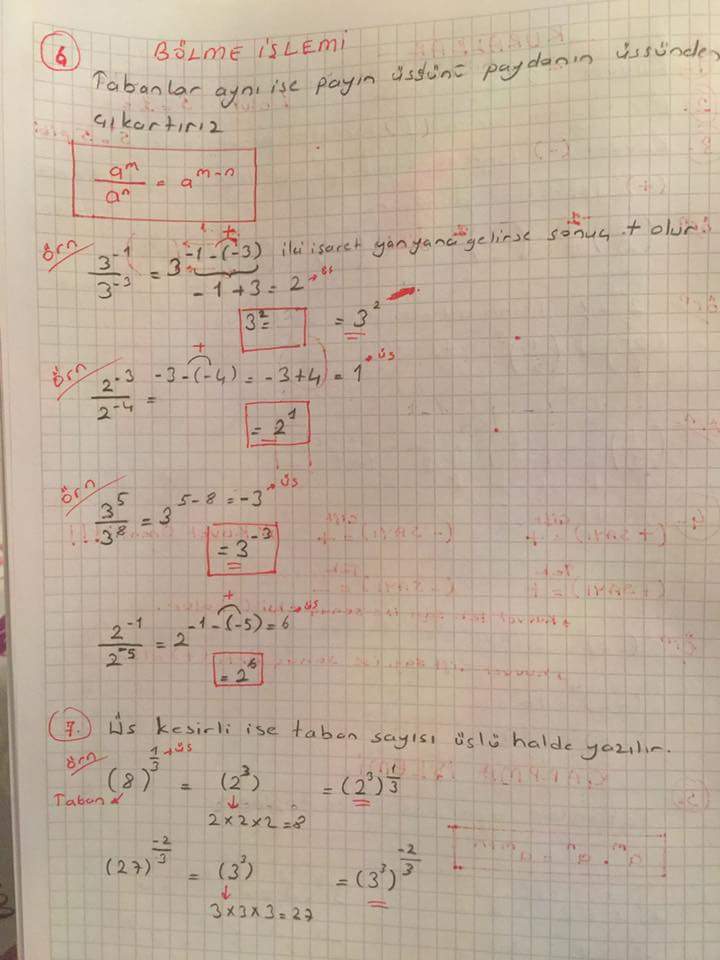 6 BÖLME İŞLEMİ
Tabanlar aynı ise payın üssünü paydanın üssünden
çıkartırız
a^m / a^n = a^(m-n)
Örn 3^-1 / 3^-3 = 3^(-1-(-3)) iki işaret yanyana gelirse sonuç + olur.
-1+3=2 → üs
3^2= =3^2
Örn 2^-3 / 2^-4 = -3-(-4) = -3+4 = 1 → üs
=2^1
Örn 3^5 / 3^8 = 3^(5-8=-3) → üs
=3^-3
2^-1 / 2^-5 = 2^(-1-(-5)=6) → üs
=2^6
7. Üs kesirli ise taban sayısı üslü halde yazılır.
Örn (8)^(1/3) → üs = (2^3) = (2^3)^(1/3)
Taban 2×2×2=8
(27)^(-2/3) = (3^3) = (3^3)^(-2/3)
3×3×3=27